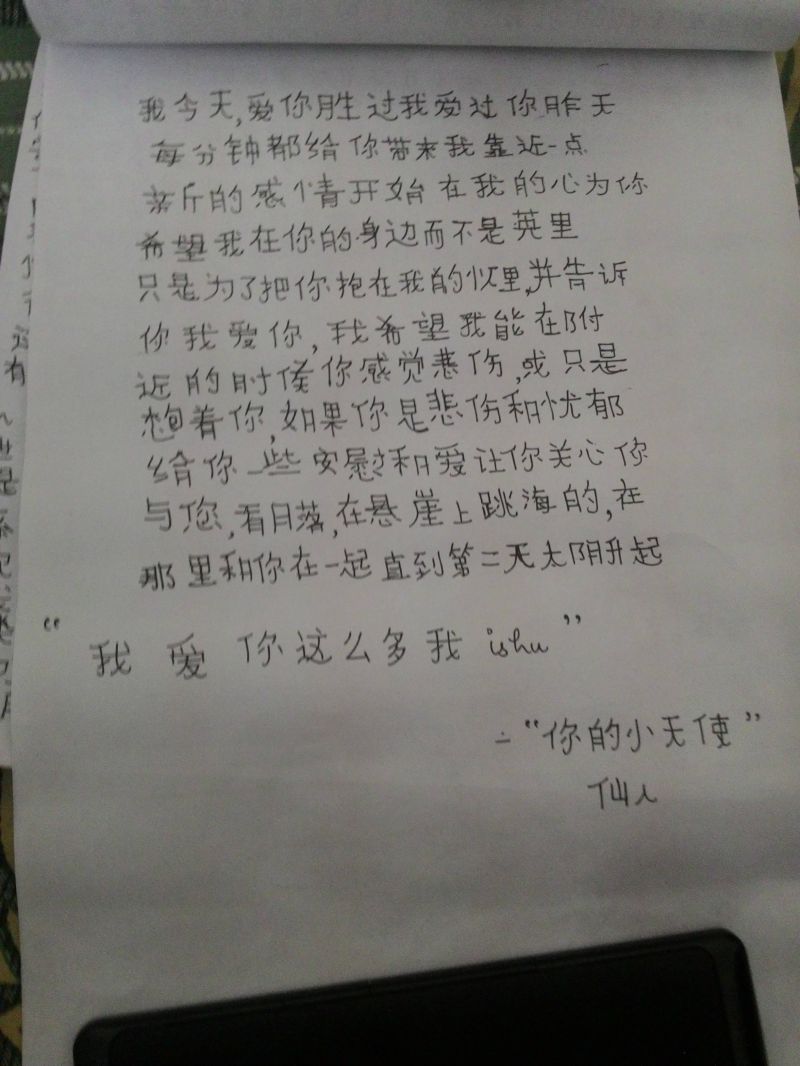 我今天,爱你胜过我爱过你昨天
每分钟都给你带来我靠近一点
亲斤的感情开始在我的心为你
希望我在你的身边而不是英里
只是为了把你抱在我的怀里,并告诉
你我爱你,我希望我能在附
近的时候你感觉悲伤,或只是
想着你,如果你是悲伤和忧郁
给你一些安慰和爱让你关心你
与您,看日落,在悬崖上跳海的,在
那里和你在一起直到第二天太阴升起
“我爱你这么多我 ishu”
-“你的小天使”
仙人